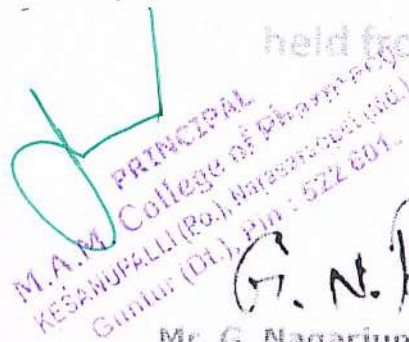 held fro
PRINCIPAL
M.A.M. College of Pharmacy
KESANUPALLI (Po.), Narasaraopet (Md.),
Guntur (Dt.), Pin : 522 601.
G. N.
Mr. G. Nagarjun